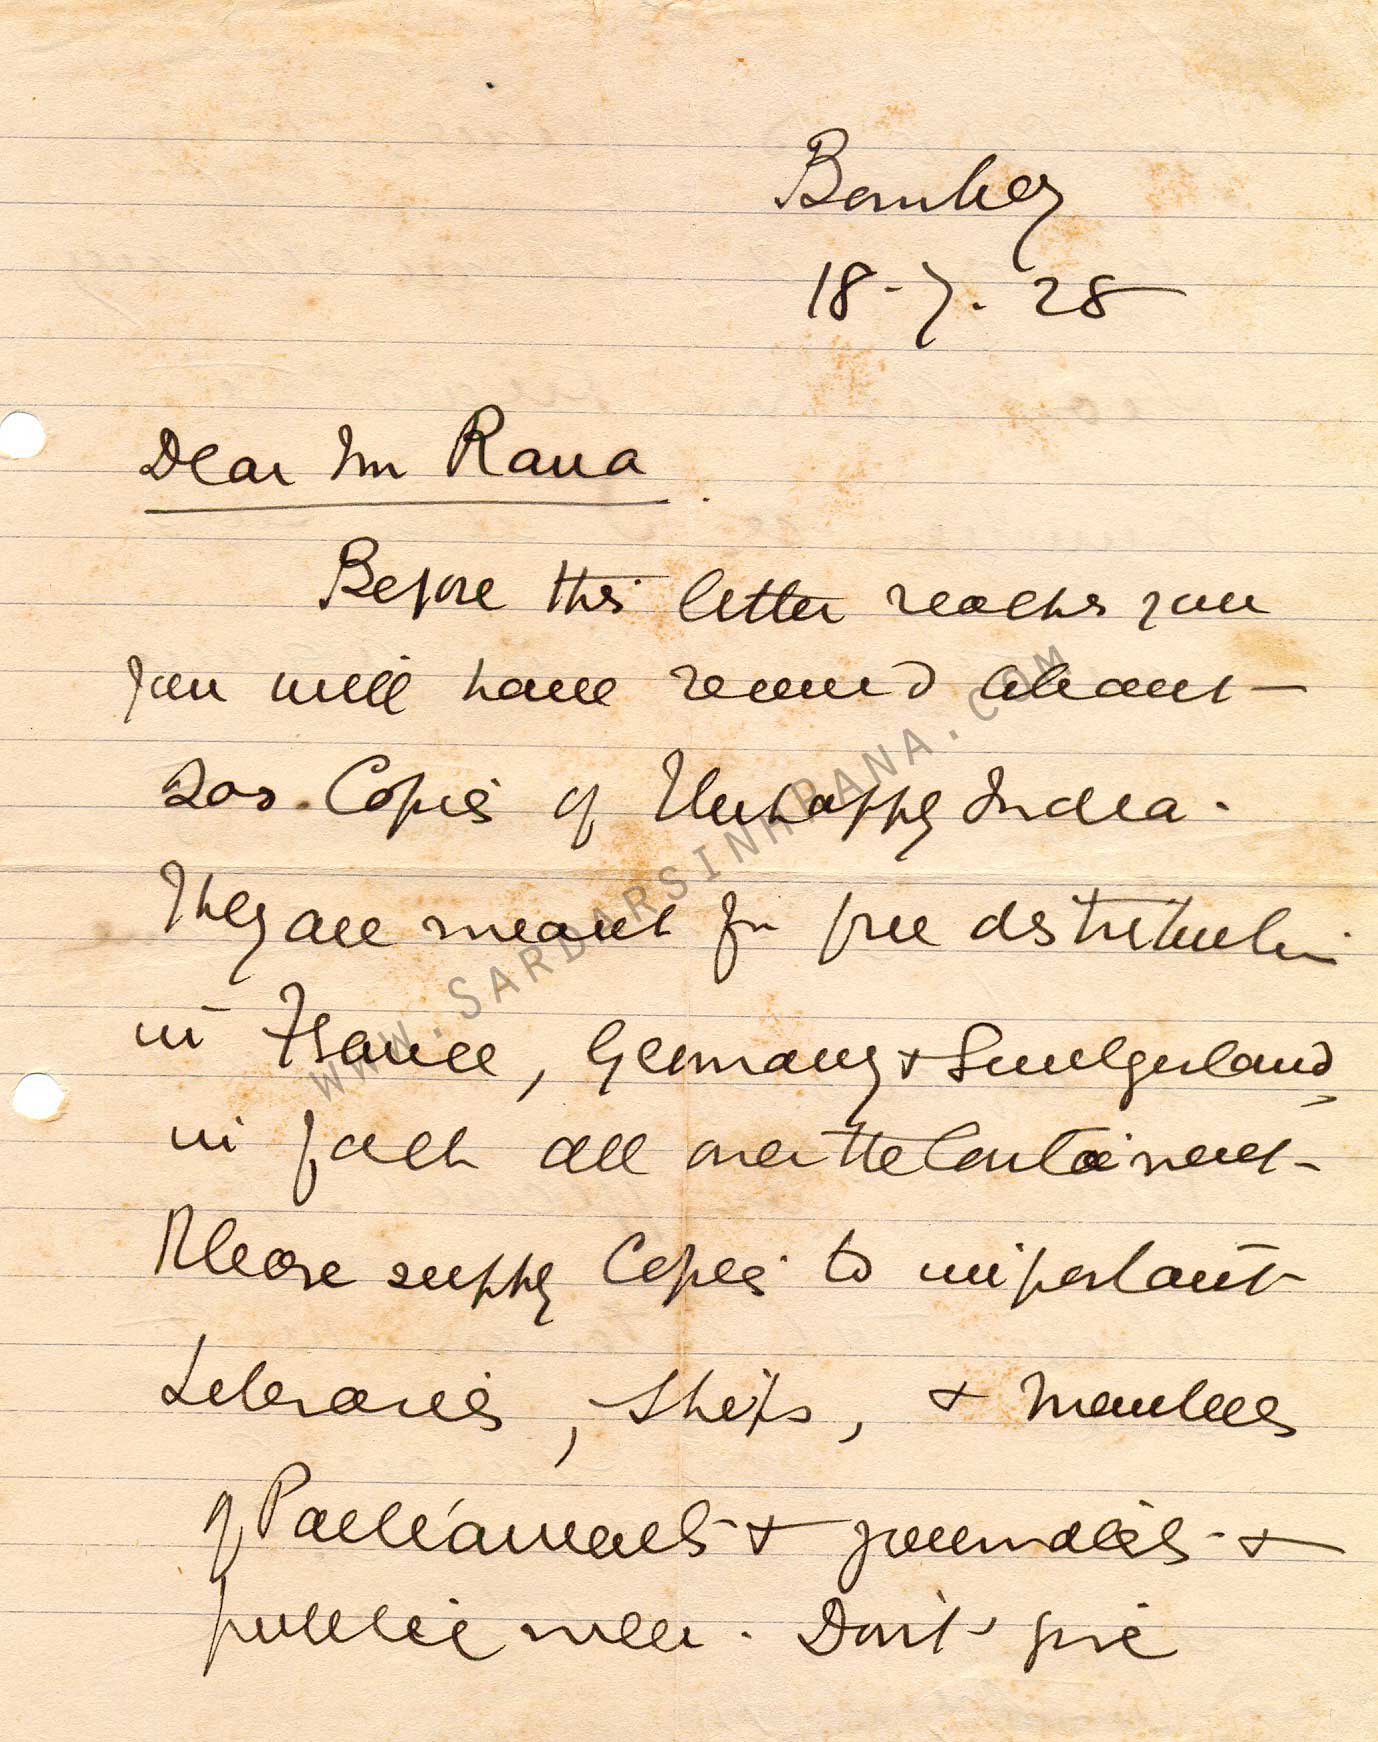 Bombay
18-7-28
Dear Mr Rana
Before this letter reaches you
you will have received about
200 Copies of Unhappy India.
They are meant for free distribution
in France, Germany & Switzerland,
in fact all over the Continent.
Please supply Copies to important
Libraries, Ships, & Members
of Parliaments & journalists &
public men. Don't give
WWW.SARDARSINHRANA.COM